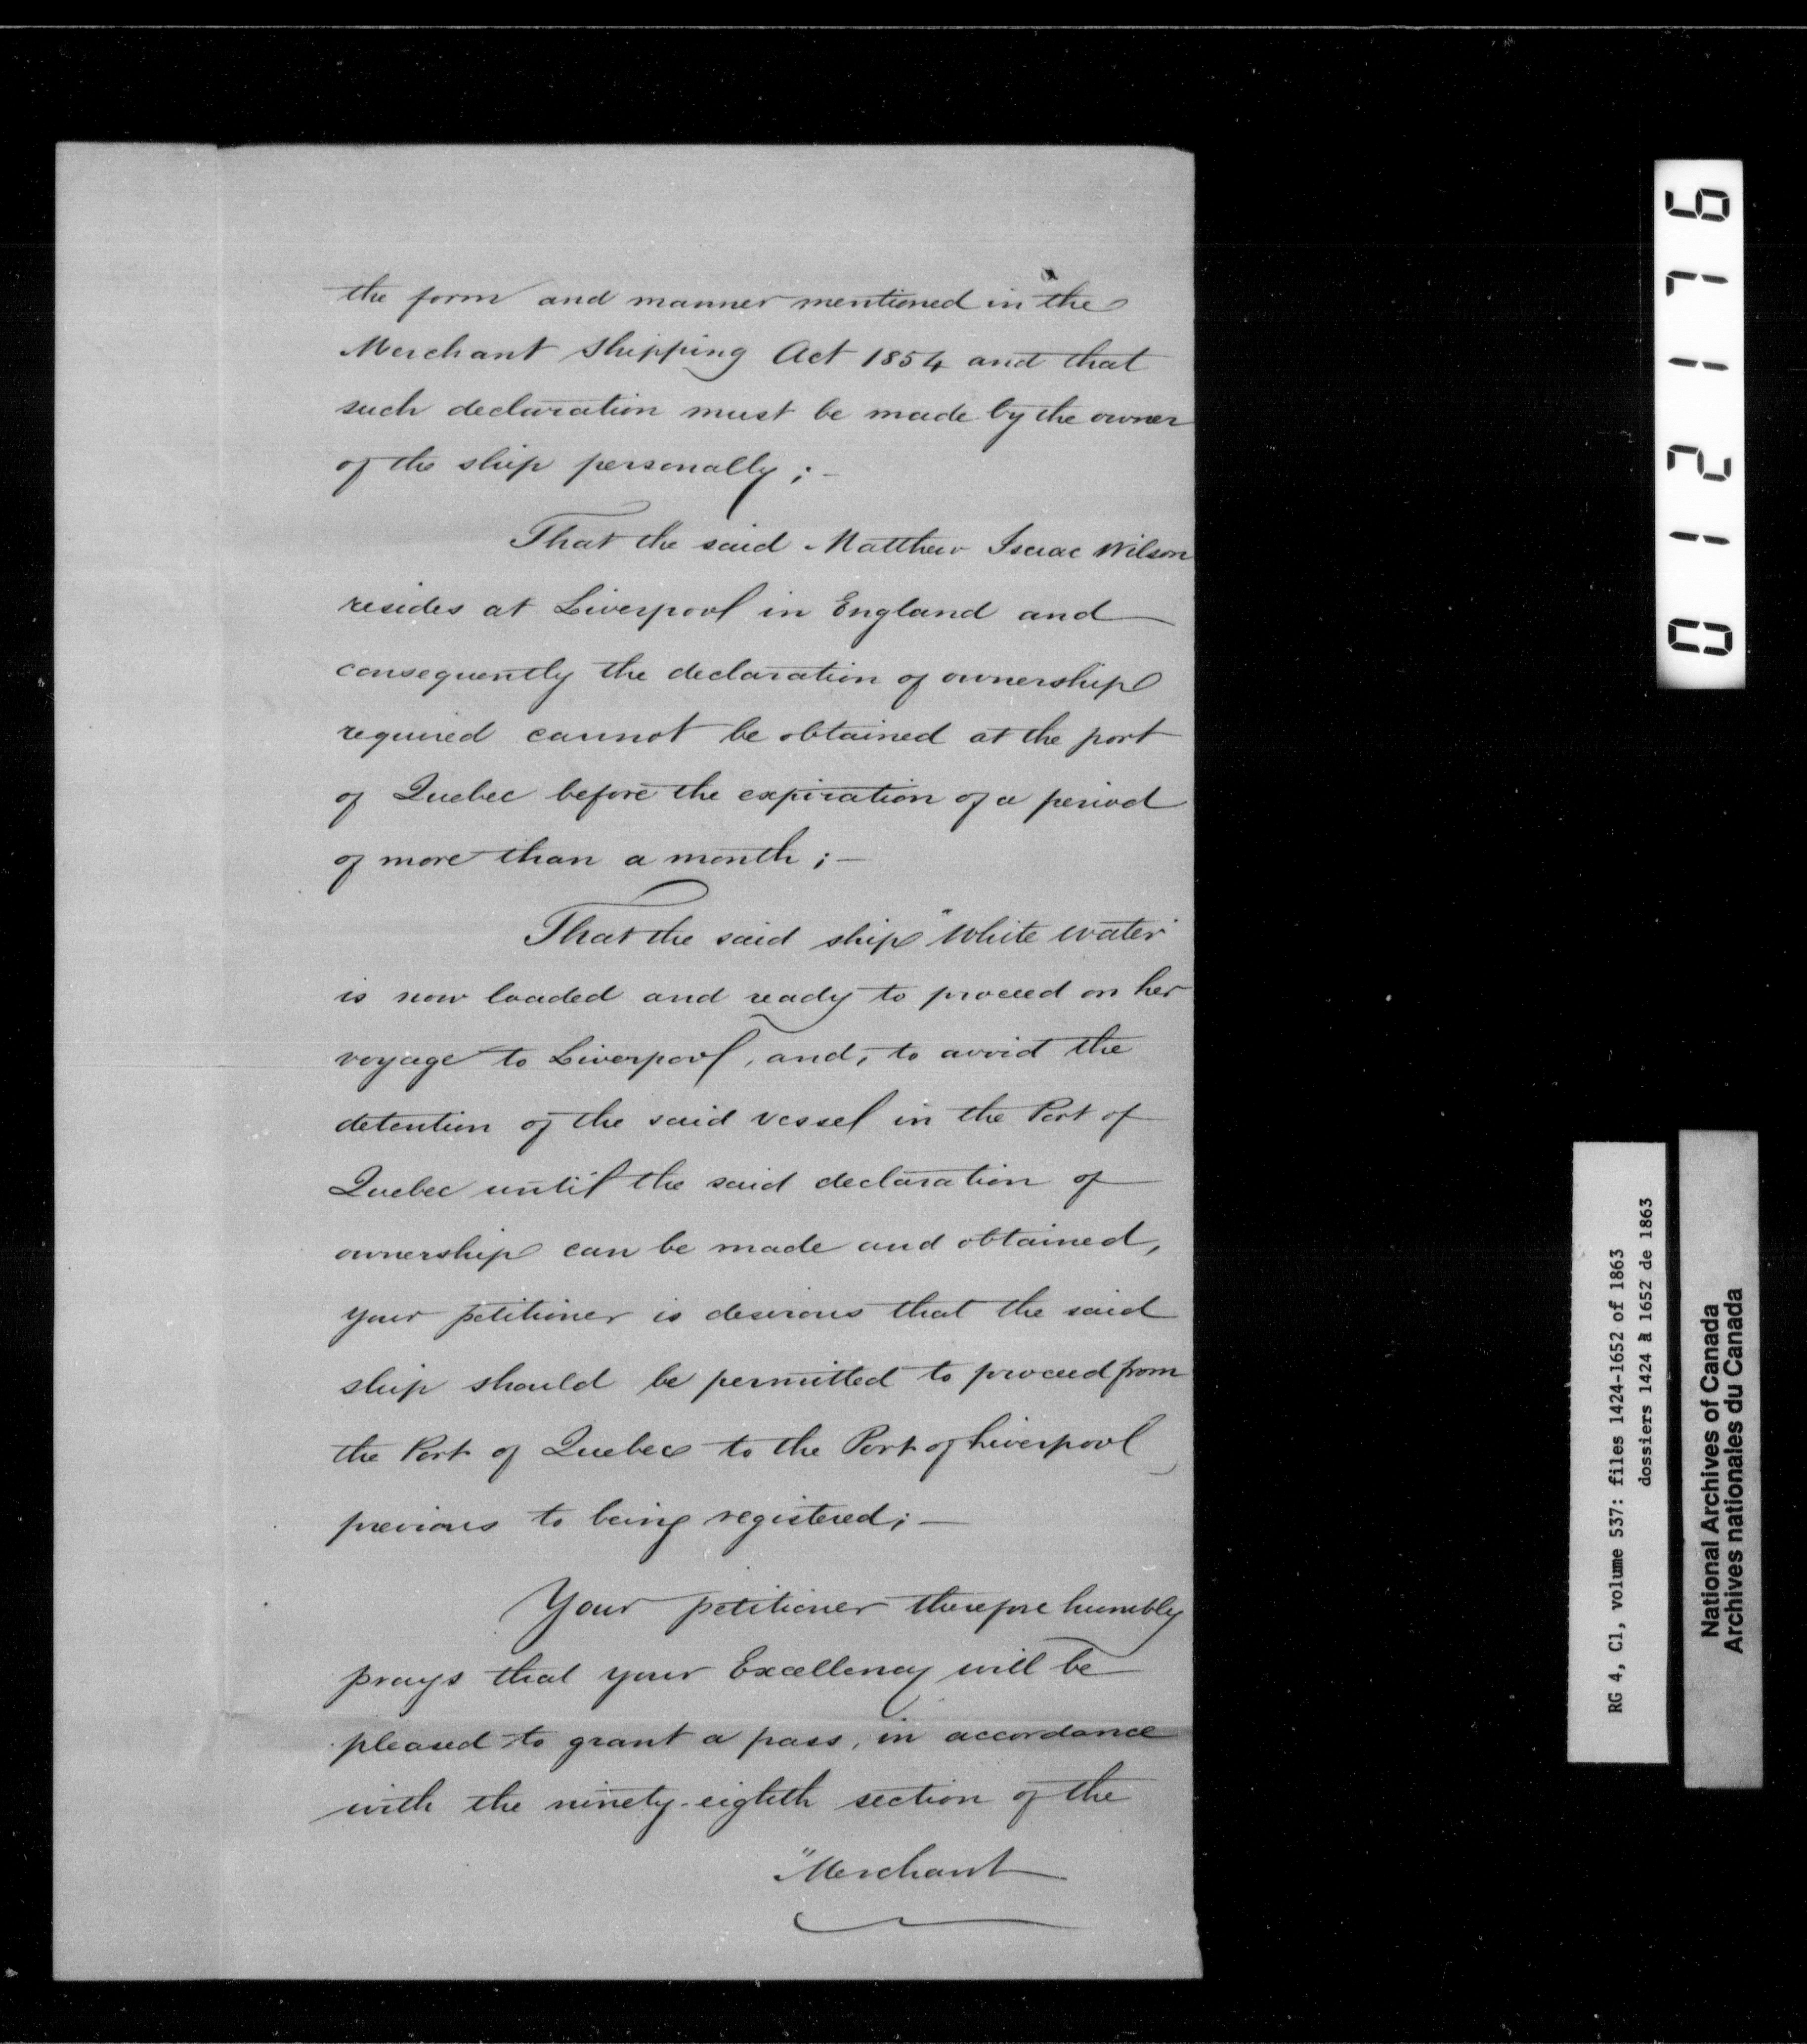 the form and manner mentioned in the
Merchant Shipping Act 1854 and that
such declaration must be made by the owner
of the ship personally ; -
That the said Matthew Isaac Wilson
resides at Liverpool in England and
consequently the declaration of ownership
required cannot be obtained at the port
of Quebec before the expiration of a period
of more than a month ; -
That the said ship "White Water"
is now loaded and ready to proceed on her
voyage to Liverpool, and, to avoid the
detention of the said vessel in the Port of
Quebec until the said declaration of
ownership can be made and obtained,
your petitioner is desirous that the said
ship should be permitted to proceed from
the Port of Quebec to the Port of Liverpool
previous to being registered ; -
Your petitioner therefore humbly
prays that your Excellency will be
pleased to grant a pass, in accordance
with the ninety-eighth section of the
"Merchant
012176
RG 4, C1, volume 537: files 1424-1652 of 1863
dossiers 1424 à 1652 de 1863
National Archives of Canada
Archives nationales du Canada